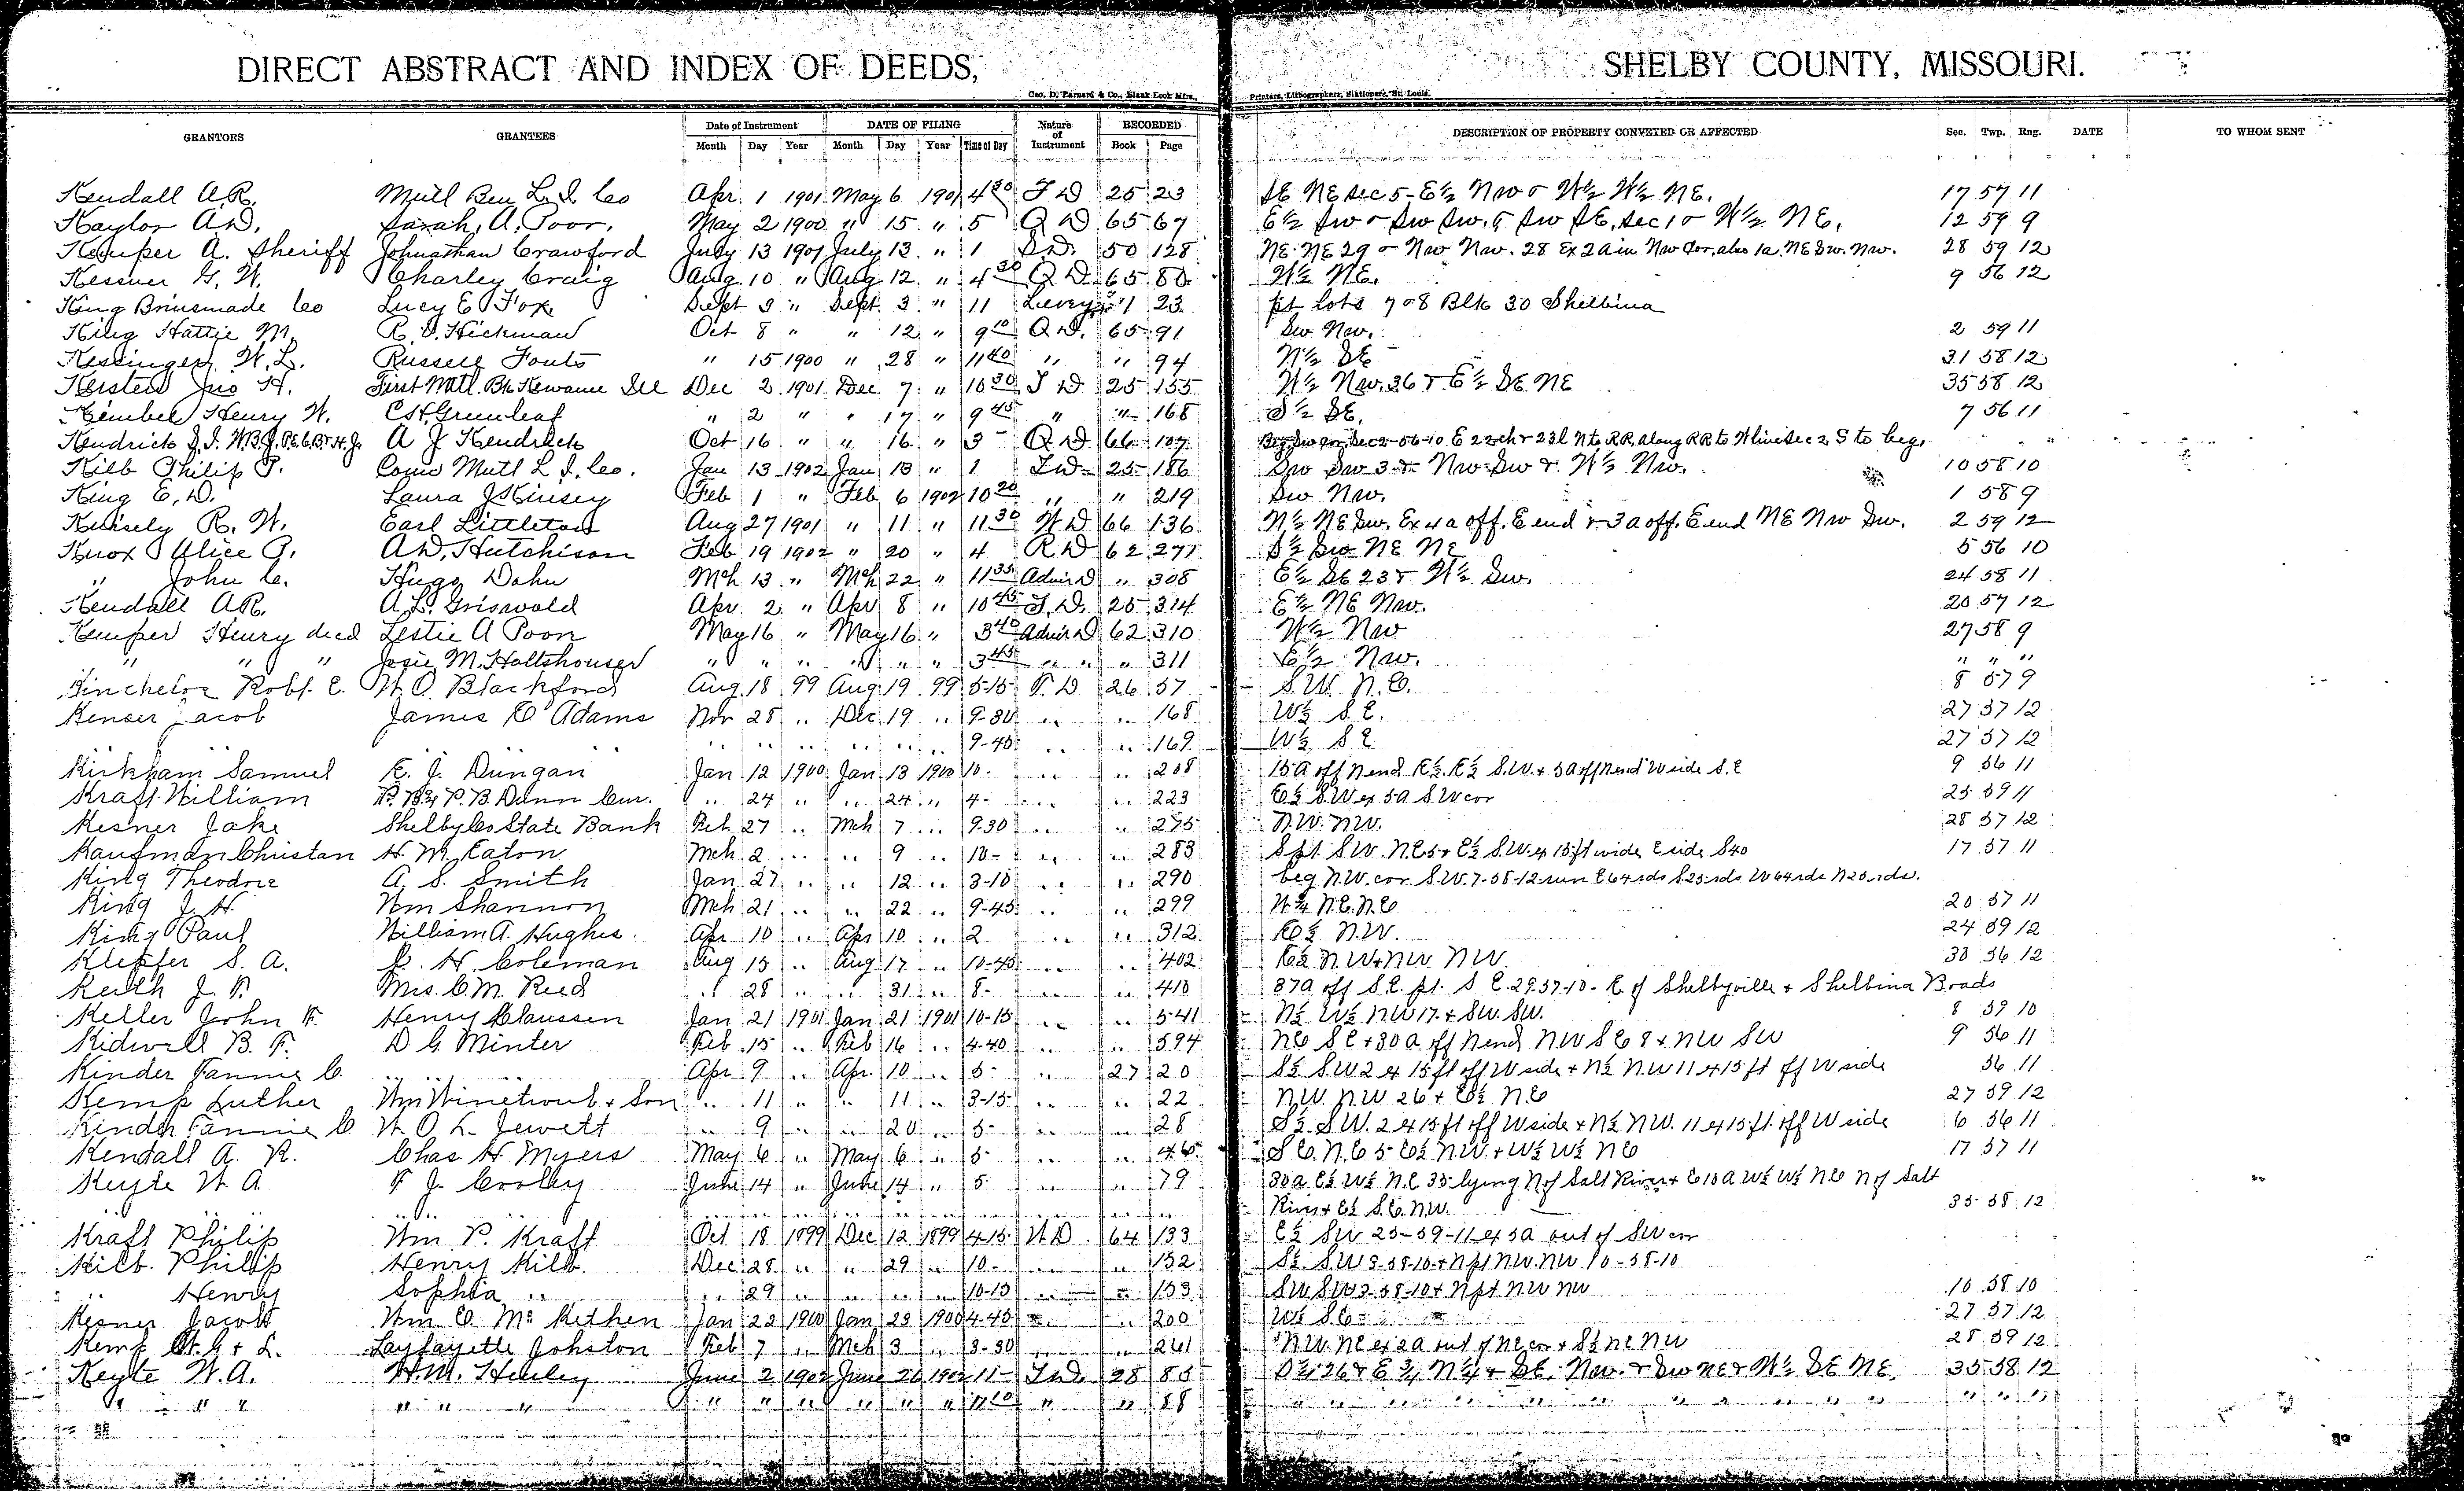 DIRECT ABSTRACT AND INDEX OF DEEDS, SHELBY COUNTY, MISSOURI.
Geo. D. Barnard & Co., Blank Book Mfrs., Printers, Lithographers, Stationers, St. Louis.
GRANTORS GRANTEES Date of Instrument DATE OF FILING Nature of Instrument RECORDED DESCRIPTION OF PROPERTY CONVEYED OR AFFECTED Sec. Twp. Rng. DATE TO WHOM SENT
Month Day Year Month Day Year Time of Day Book Page
Kendall A.R. Mutl Ben L. I. Co Apr. 1 1901 May 6 1901 4 30 T D 25 23 SE NE sec 5 - E½ NW & W½ W½ NE. 17 57 11
Kaylor A.D. Sarah, A, Poor, May 2 1900 " 15 " 5 Q D 65 67 E½ SW & SW SW, & SW SE, sec 1 & W½ NE, 12 59 9
Kemper A. Sheriff Johnathan Crawford July 13 1901 July 13 " 1 S.D. 50 128 NE NE 29 & NW NW. 28 Ex 2a in NW Cor, also 1a. NE SW. NW. 28 59 12
Kessner G. W. Charley Craig Aug. 10 " Aug 12 " 4 30 Q D 65 80 W½ NE. 9 56 12
King Brinsmade Co Lucy E Fox Sept 3 " Sept 3 " 11 Levey 1 23 pt lots 7 & 8 Blk 30 Shelbina
King Hattie M. R. D. Hickman Oct 8 " " 12 " 9 10 Q D. 65 91 SW NW. 2 59 11
Kessinger W. L. Russell Fouts " 15 1900 " 28 " 11 40 " " 94 N½ SE 31 58 12
Kersten Jno H. First Natl. Bk Kewanee Ill Dec 2 1901 Dec 7 " 10 30 T D 25 155 W½ NW. 36 & E½ SE NE 35 58 12
Kimbel Henry W. C.H. Greenleaf " 2 " " 17 " 9 45 " " 168 S½ SE. 7 56 11
Kendrick A J Kendrick Oct 16 " " 16 " 3 Q D 66 107 Beg SW cor Sec 2-56-10 E 22 ch & 23 l N to RR, along RR to W line Sec 2, S to beg.
Kilb Philip P. Conn Mutl L. I. Co. Jan 13 1902 Jan 13 " 1 T D 25 186 SW SW 3 & NW SW & W½ NW. 10 58 10
King E. D. Laura J Kinsey Feb 1 " Feb 6 1902 10 20 " " 219 SW NW. 1 58 9
Knisely R. W. Earl Littleton Aug 27 1901 " 11 " 11 30 W D 66 136 N½ NE SW. Ex 4 a off. E end & 3 a off. E end NE NW SW. 2 59 12
Knox Alice P. A.D. Hutchison Feb 19 1902 " 20 " 4 R D 62 277 S½ SW NE NE 5 56 10
" John C. Hugo Dohn Mch 13 " Mch 22 " 11 35 Admr D " 308 E½ SE 23 & W½ SW. 24 58 11
Kendall A.R. A.L. Griswold Apr. 2 " Apr 8 " 10 45 T. D. 25 314 E½ NE NW. 20 57 12
Kemper Henry decd Leslie A Poor May 16 " May 16 " 3 40 Admr D 62 310 W½ NW 27 58 9
" " " Josie M. Holtshouser " " " " " " 3 45 " " " 311 E½ NW. " " "
Kincheloe Robt. E. W. O. Blackford Aug 18 99 Aug 19 99 5-15 T. D 26 57 S. W. N. E. 8 57 9
Kenser Jacob James E Adams Nov 28 .. Dec. 19 .. 9-30 .. .. 168 W½ S. E. 27 57 12
.. .. .. .. .. .. 9-40 .. .. 169 W½ S E 27 57 12
Kirkham Samuel E. J. Dungan Jan 12 1900 Jan. 13 1900 10- .. .. 208 15a off N end E½. E½ S.W. & 5a off N end W side S. E 9 56 11
Kraft William P. B. Dunn Cur. .. 24 .. .. 24 .. 4- .. .. 223 E½ S.W ex 5a S W cor 25 59 11
Kesner Jake Shelby Co State Bank Feb 27 .. Mch 7 .. 9.30 .. .. 275 N.W. NW. 28 57 12
Kaufman Christan H. M. Eaton Mch 2 .. .. 9 .. 10- .. .. 283 S pt. S W. N.E 5 & E½ S.W. ex 15 ft wide E side S 40 17 57 11
King Theodore A. S. Smith Jan 27 .. .. 12 .. 3-10 .. .. 290 beg N.W. cor S.W. 7-58-12 run E 64 rds S 25 rds W 64 rds N 25 rds.
King J. H. Wm Shannon Mch 21 .. .. 22 .. 9-45 .. .. 299 N.E. N.E 20 57 11
King Paul William A. Hughes Apr 10 .. Apr 10 .. 2 .. .. 312 E½ N.W. 24 59 12
Klepfer S. A. J. H. Coleman Aug 15 .. Aug 17 .. 10-45 .. .. 402 E½ N W & NW NW. 33 56 12
Keith J. P. Mrs. C. M. Reed .. 28 .. .. 31 .. 8- .. .. 410 37a off S. E. pt. S E. 29.57-10 - E of Shelbyville & Shelbina Roads
Keller John F. Henry Claussen Jan 21 1901 Jan 21 1901 10-15 .. .. 541 N½ W½ NW 17 & SW. SW. 8 59 10
Kidwell B. F. D G Minter Feb 15 .. Feb 16 .. 4-40 .. .. 594 NE S E & 30 a off N end NW S E 8 & NW SW 9 56 11
Kinder Fannie C. .. .. .. Apr 9 .. Apr. 10 .. 5- .. 27 20 S½ S.W 2 ex 15 ft off W side & N½ N.W 11 ex 15 ft off W side 56 11
Kemp Luther Wm Winetroub & Son .. 11 .. .. 11 .. 3-15 .. .. 22 N.W. N.W 26 & E½ N.E 27 59 12
Kinder Fannie C W. O. L. Jewett .. 9 .. .. 20 .. 5- .. .. 28 S½ S.W. 2 ex 15 ft off W side & N½ NW. 11 ex 15 ft. off W side 6 56 11
Kendall A. R. Chas H Myers May 6 .. May 6 .. 5- .. .. 46 S E. N. E 5- E½ N.W. & W½ W½ NE 17 57 11
Keyte W. A. F J. Cooley June 14 .. June 14 .. 5 .. .. 79 30a E½ W½ N.E 35 lying N of Salt River & E 10 a W½ W½ NE N of Salt
.. .. .. .. River & E½ S.E. N.W. 35 58 12
Kraft Philip Wm. P. Kraft Oct 18 1899 Dec 12 1899 4-15 W. D. 64 133 E½ SW 25-59-11 ex 5a out of SW cor
Kilb. Philip Henry Kilb. Dec 28 .. .. 29 .. 10- .. 152 S½ S.W 3-58-10 & N pt NW. NW 10-58-10
.. Henry Sophia .. .. 29 .. .. .. .. 10-15 .. .. 153 SW SW 3-58-10 & N pt NW NW 10 58 10
Kesner Jacob Wm. E. McKethen Jan 22 1900 Jan 23 1900 4-45 .. .. 200 W½ SE 27 57 12
Kemp & L. Layfayette Johston Feb 7 .. Mch 3 .. 3-30 .. .. 261 NW NE ex 2a out of NE cor & S½ NE NW 28 59 12
Keyte W. A. H.M. Henley June 2 1902 June 26 1902 11- T D. 28 85 S½ 26 & E ¾ N½ & SE. NW. & SW NE & W½ SE NE. 35 58 12
" " " " " " " " " " " " 11 10 " " 88 " " " " " " " " " " " " "